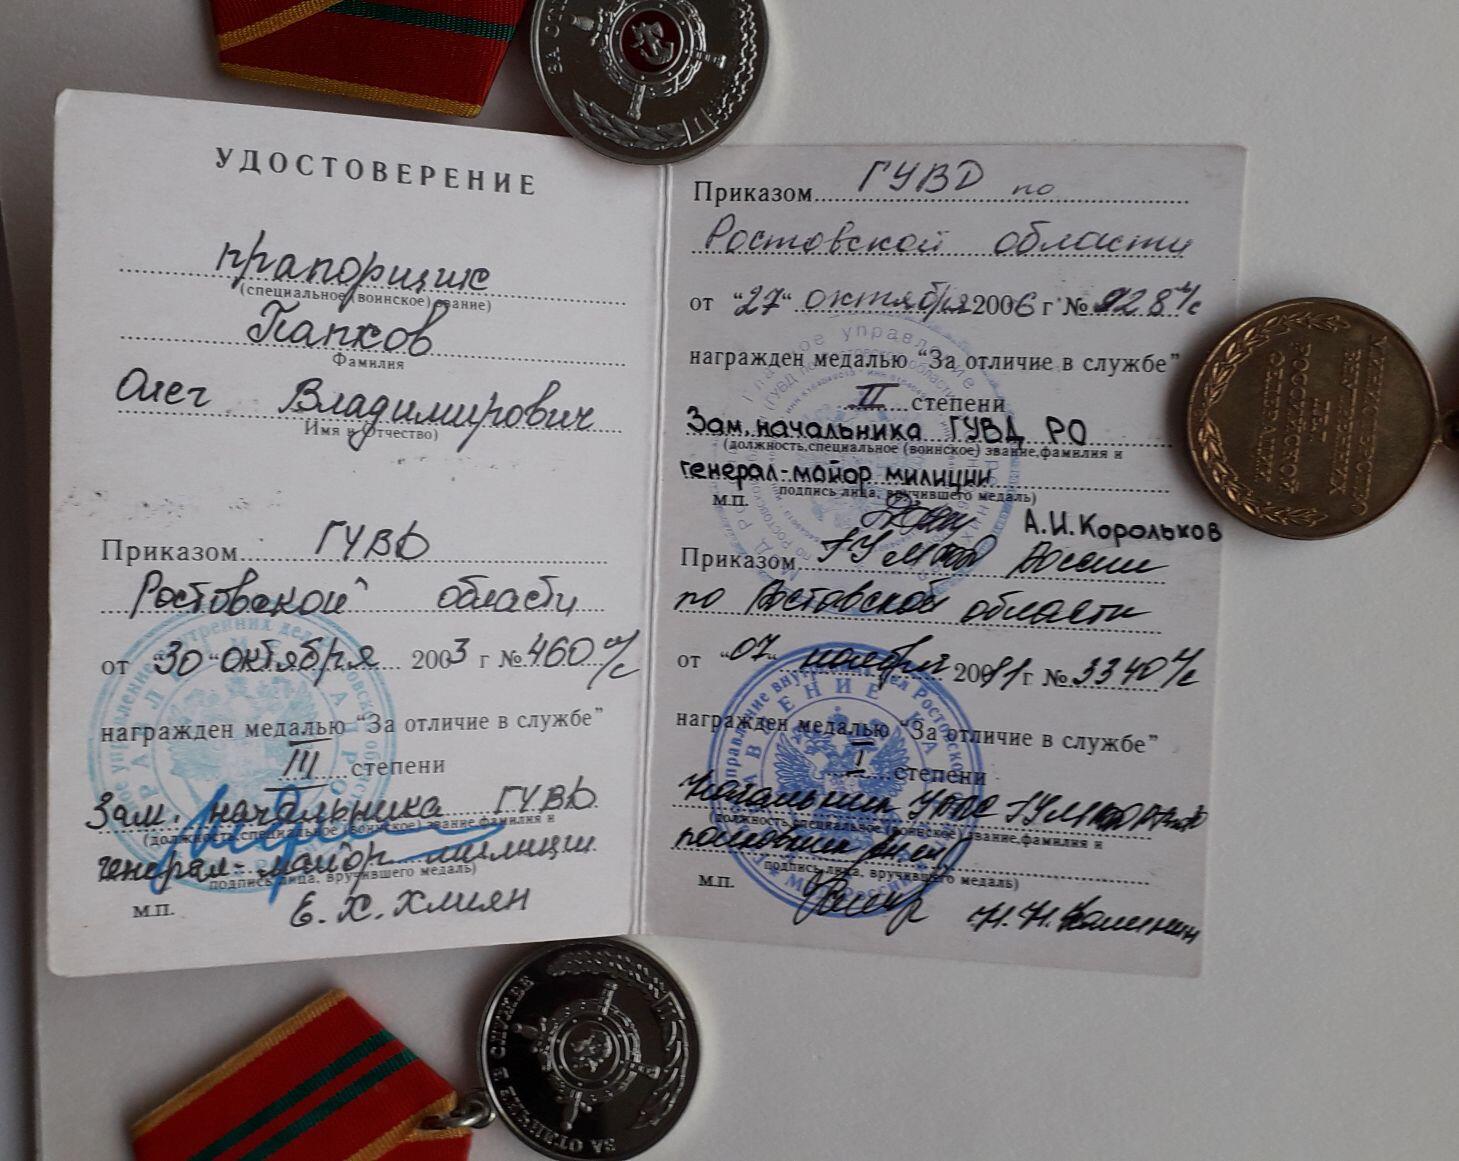 УДОСТОВЕРЕНИЕ
прапорщик
(специальное (воинское) звание)
Папков
Фамилия
Олег Владимирович
Имя и Отчество)
Приказом ГУВД
Ростовской области
от "30" октября 2003 г № 460 л/с
награжден медалью "За отличие в службе"
III степени
Зам. начальника ГУВД
(должность, специальное (воинское) звание, фамилия и
генерал-майор милиции
подпись лица, вручившего медаль)
М.П.
Е. Х. Хлиян
Приказом ГУВД по
Ростовской области
от "27" октября 2006 г № 928 л/с
награжден медалью "За отличие в службе"
II степени
Зам. начальника ГУВД РО
(должность, специальное (воинское) звание, фамилия и
генерал-майор милиции
подпись лица, вручившего медаль)
М.П.
А.И. Корольков
Приказом ГУ МВД России
по Ростовской области
от "07" ноября 2011 г № 3340 л/с
награжден медалью "За отличие в службе"
I степени
Начальник
(должность, специальное (воинское) звание, фамилия и
полковник
подпись лица, вручившего медаль)
М.П.
МИНИСТЕРСТВО
ВНУТРЕННИХ
ДЕЛ
РОССИЙСКОЙ
ФЕДЕРАЦИИ
ЗА ОТЛИЧИЕ В СЛУЖБЕ